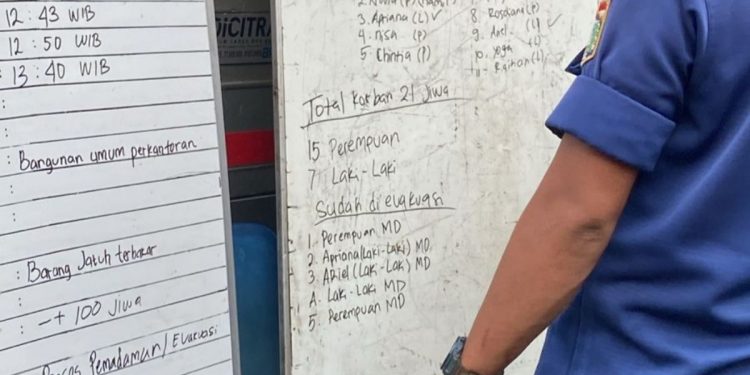 12 : 43 WIB
12 : 50 WIB
: 13 : 40 WIB
:
:
: Bangunan umum perkantoran
:
:
: Barang Jatuh terbakar
:
: -+ 100 Jiwa
Pemadaman / Evakuasi
DiCITRA
3. Apriana (L) ✓
4. Nisa (P)
5. Chintia (P)
8. Rosdiana (P)
9. Ariel (L) ✓
10. Yoga (L)
11. Raihan (L)
Total Korban 21 Jiwa
15 Perempuan
7 Laki-Laki
Sudah di evakuasi
1. Perempuan MD
2. Apriana (Laki-Laki) MD
3. ARiel (Laki-Laki) MD
4. Laki-Laki MD
5. Perempuan MD